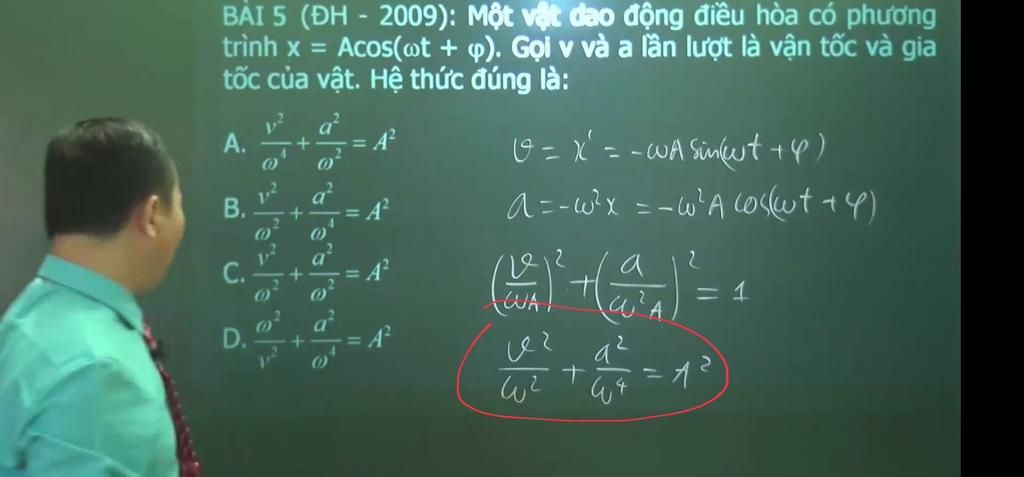 BÀI 5 (ĐH - 2009): Một vật dao động điều hòa có phương
trình x = Acos(ωt + φ). Gọi v và a lần lượt là vận tốc và gia
tốc của vật. Hệ thức đúng là:
A. v²/ω⁴ + a²/ω² = A²
B. v²/ω² + a²/ω⁴ = A²
C. v²/ω² + a²/ω² = A²
D. ω²/v² + a²/ω⁴ = A²
v = x' = -ωA sin(ωt + φ)
a = -ω²x = -ω²A cos(ωt + φ)
(v/ωA)² + (a/ω²A)² = 1
v²/ω² + a²/ω⁴ = A²